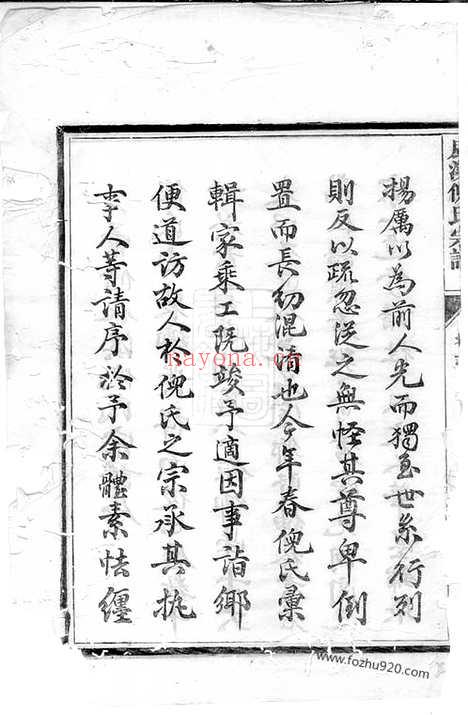 倪氏宗譜
揚厲以為前人光而獨至世系行列
則反以疏忽從之無怪其尊卑倒
置而長幼混淆也今年春倪氏彙
輯家乘工既竣予適因事詣鄉
便道訪故人於倪氏之宗承其執
事人等請序於予余體素怯纏
nayona.cn
www.fozhu920.com